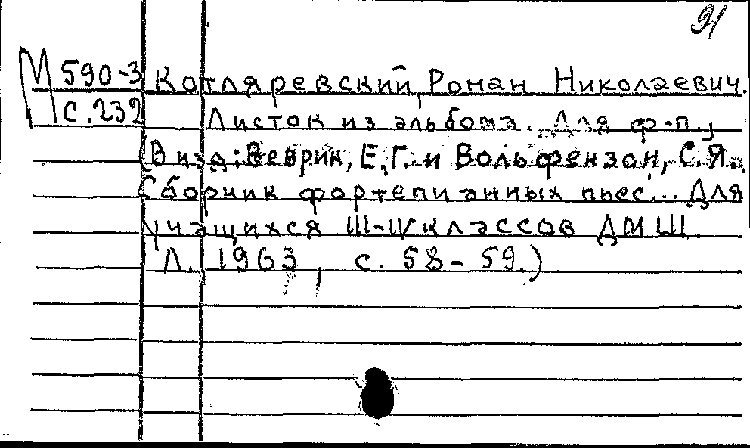 91
М 590-3 Котляревский, Роман Николаевич.
с. 232 Листок из альбома. Для ф-п.,
(В изд: Веврик, Е.Г. и Вольфензон, С.Я.
Сборник фортепианных пьес... Для
учащихся III-IV классов ДМШ.
Л. 1963, с. 58-59.)